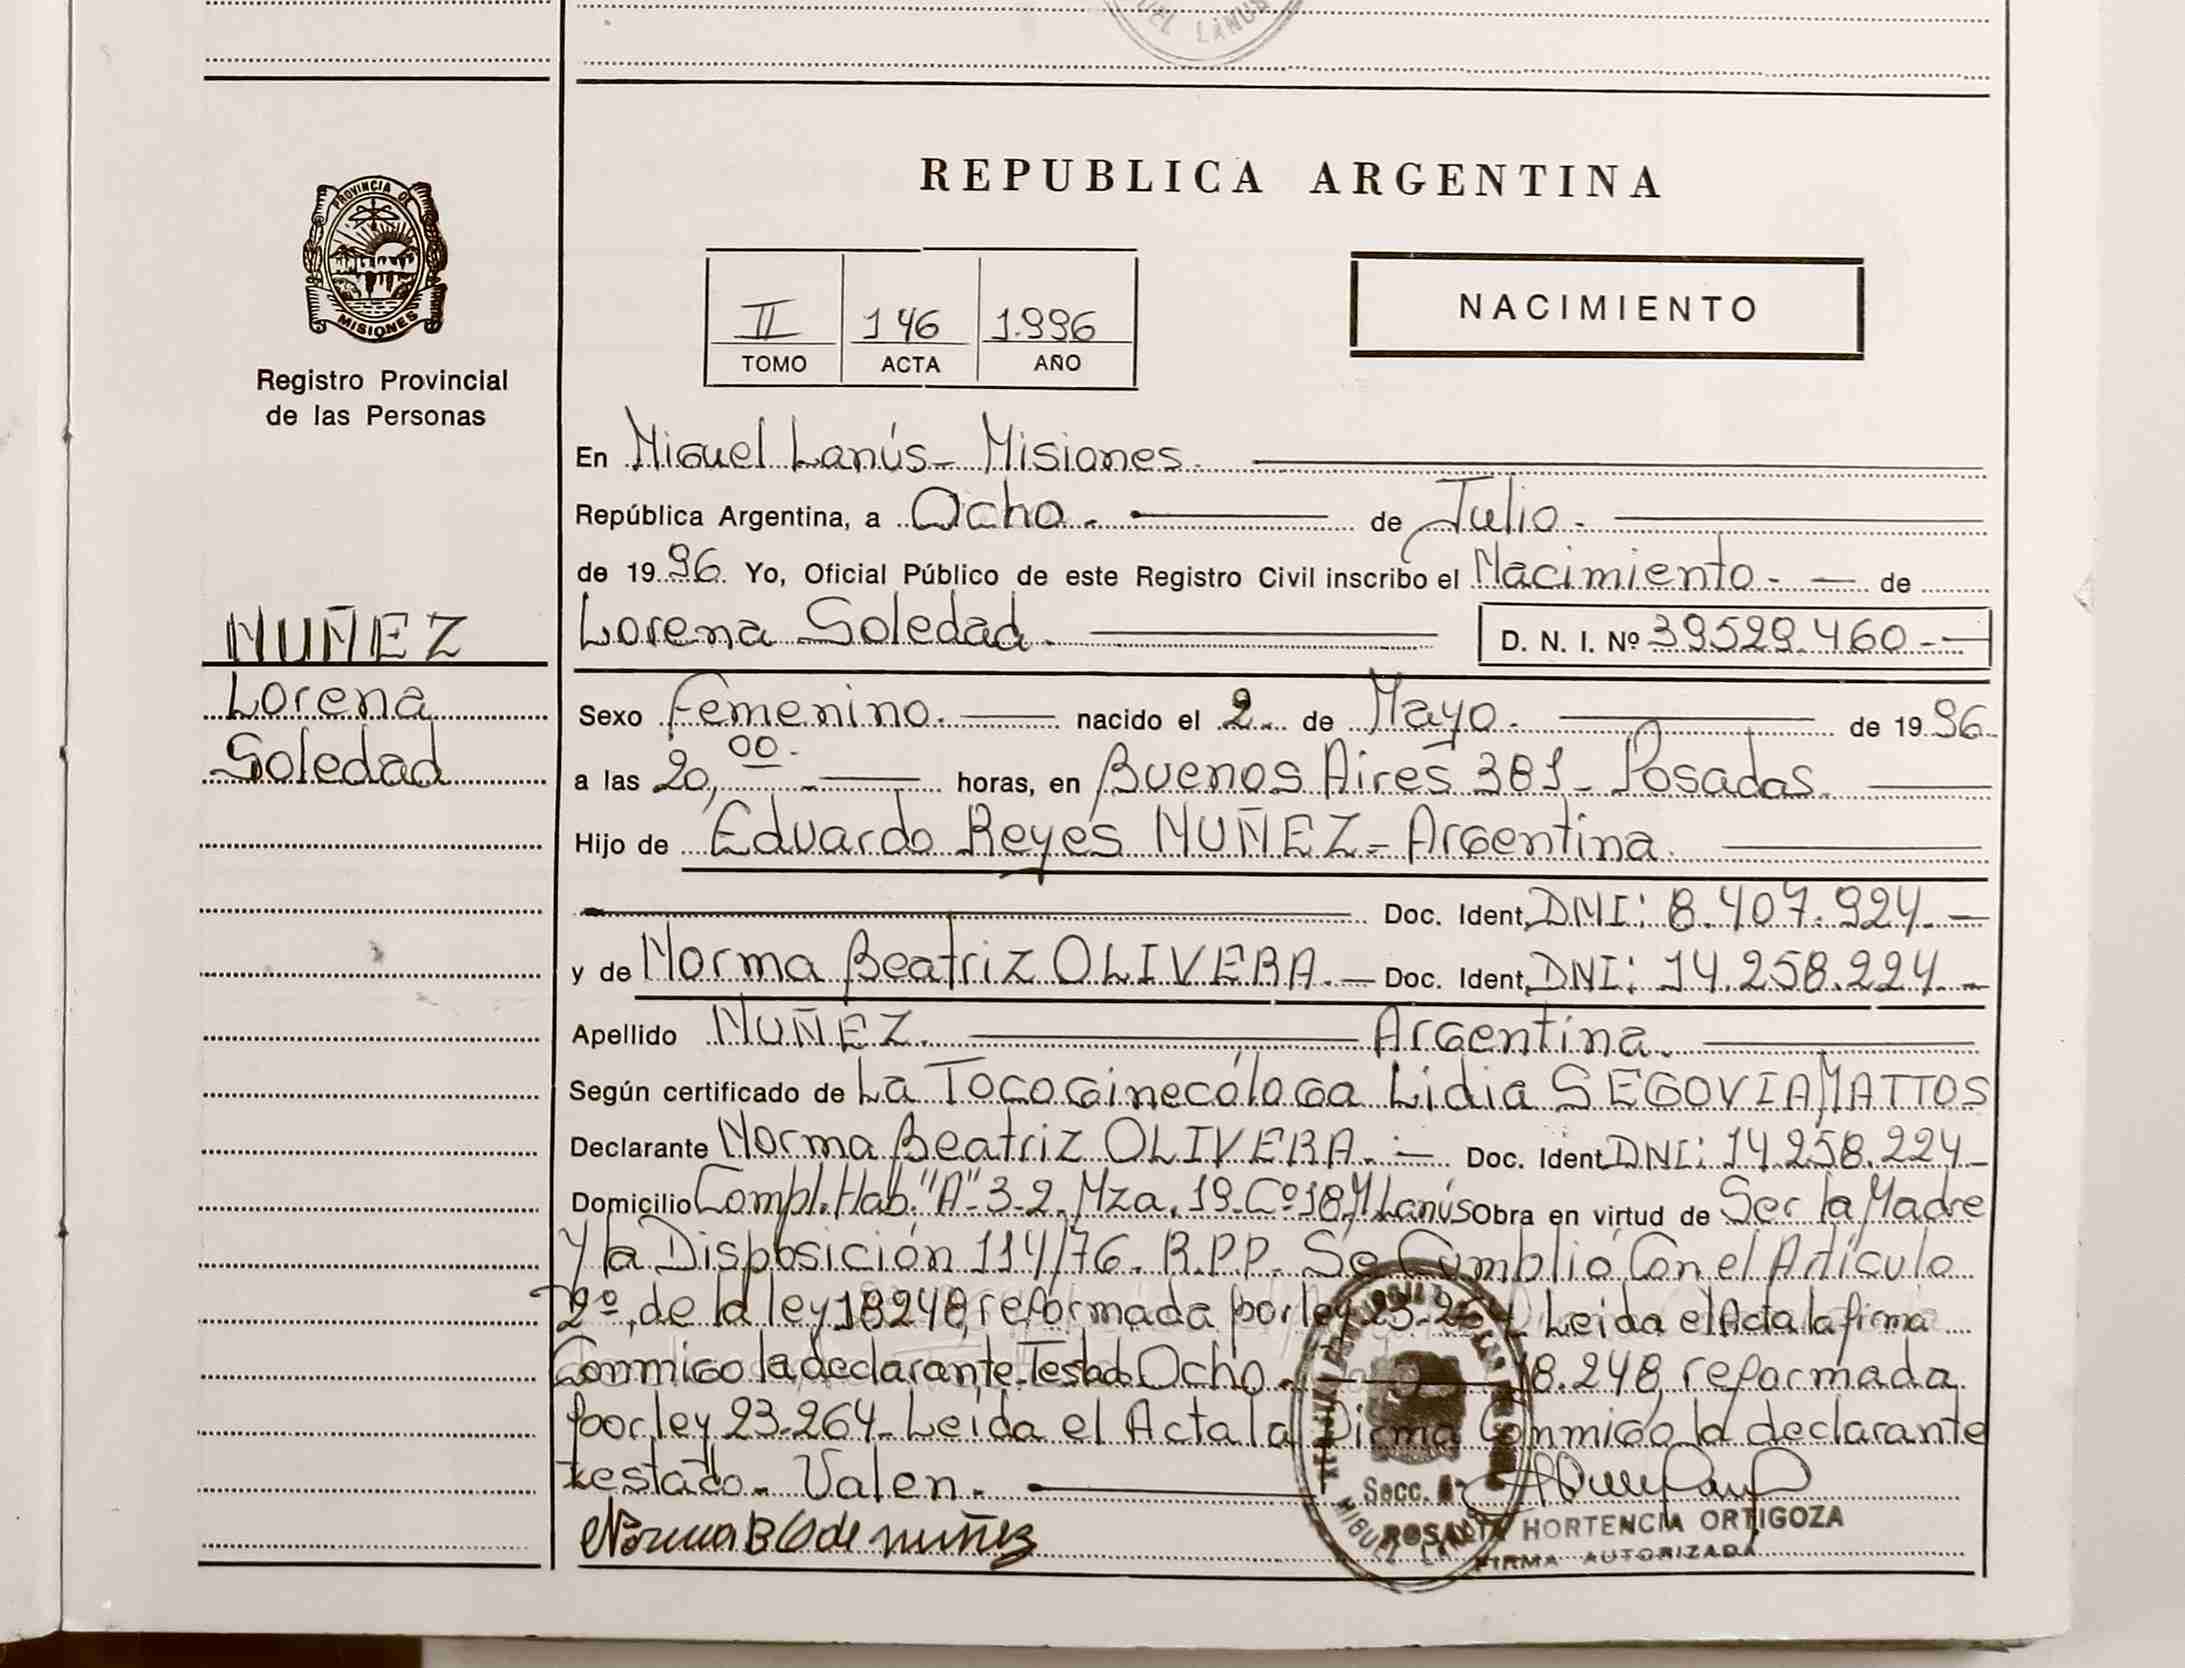 UEL LANUS
REPUBLICA ARGENTINA
PROVINCIA DE
MISIONES
Registro Provincial
de las Personas
II 146 1.996
TOMO ACTA AÑO
NACIMIENTO
En Miguel Lanús - Misiones.
República Argentina, a Ocho. - de Julio.
de 1996. Yo, Oficial Público de este Registro Civil inscribo el Nacimiento. - de
NUÑEZ
Lorena
Soledad
Lorena Soledad. D. N. I. Nº 39529.460.-
Sexo Femenino. nacido el 2 de Mayo. de 1996.
a las 20,00.- horas, en Buenos Aires 381 - Posadas.
Hijo de Eduardo Reyes NUÑEZ - Argentina.
Doc. Ident. DNI: 8.407.924.-
y de Norma Beatriz OLIVERA. - Doc. Ident. DNI: 14.258.224.-
Apellido NUÑEZ. Argentina.
Según certificado de La Tocoginecóloga Lidia SEGOVIA MATTOS
Declarante Norma Beatriz OLIVERA. - Doc. Ident. DNI: 14.258.224-
Domicilio Compl. Hab. "A" 3-2. Mza. 19. Cº18 M. Lanús Obra en virtud de Ser la Madre
Y la Disposición 114/76. R.P.P. Se Cumplió Con el Artículo
2º, de la ley 18248, reformada por ley 23.264 Leida el Acta la firma
Conmigo la declarante. Testado Ocho. - 18.248, reformada
por ley 23.264. Leída el Acta la Firma Conmigo la declarante
testado. Valen. -
Norma B O de nuñez
Secc.
ROSALIA HORTENCIA ORTIGOZA
FIRMA AUTORIZADA
MIGUEL LANUS